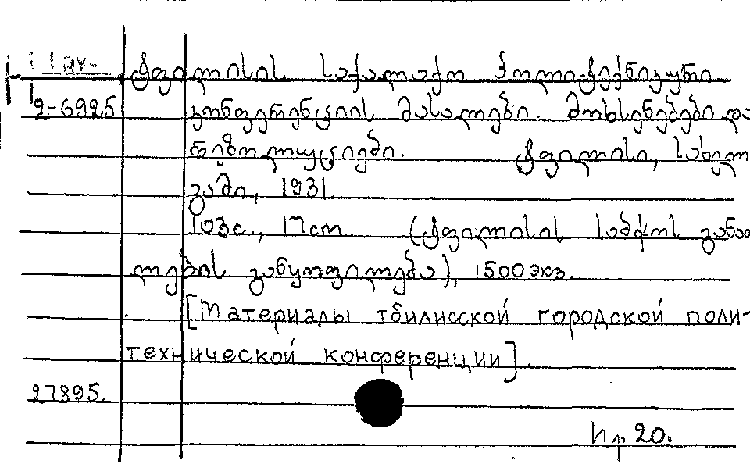 ტფილისის საქალაქო პოლიტექნიკური
2-6925 კონფერენციის მასალები. მოხსენებები და
რეზოლიუციები. ტფილისი, სახელ
გამი, 1931
103с., 17cm (ტფილისის საბჭოს განათ
ლების განყოფილება), 1500 экз.
[Материалы тбилисской городской поли-
технической конференции].
27895.
20.